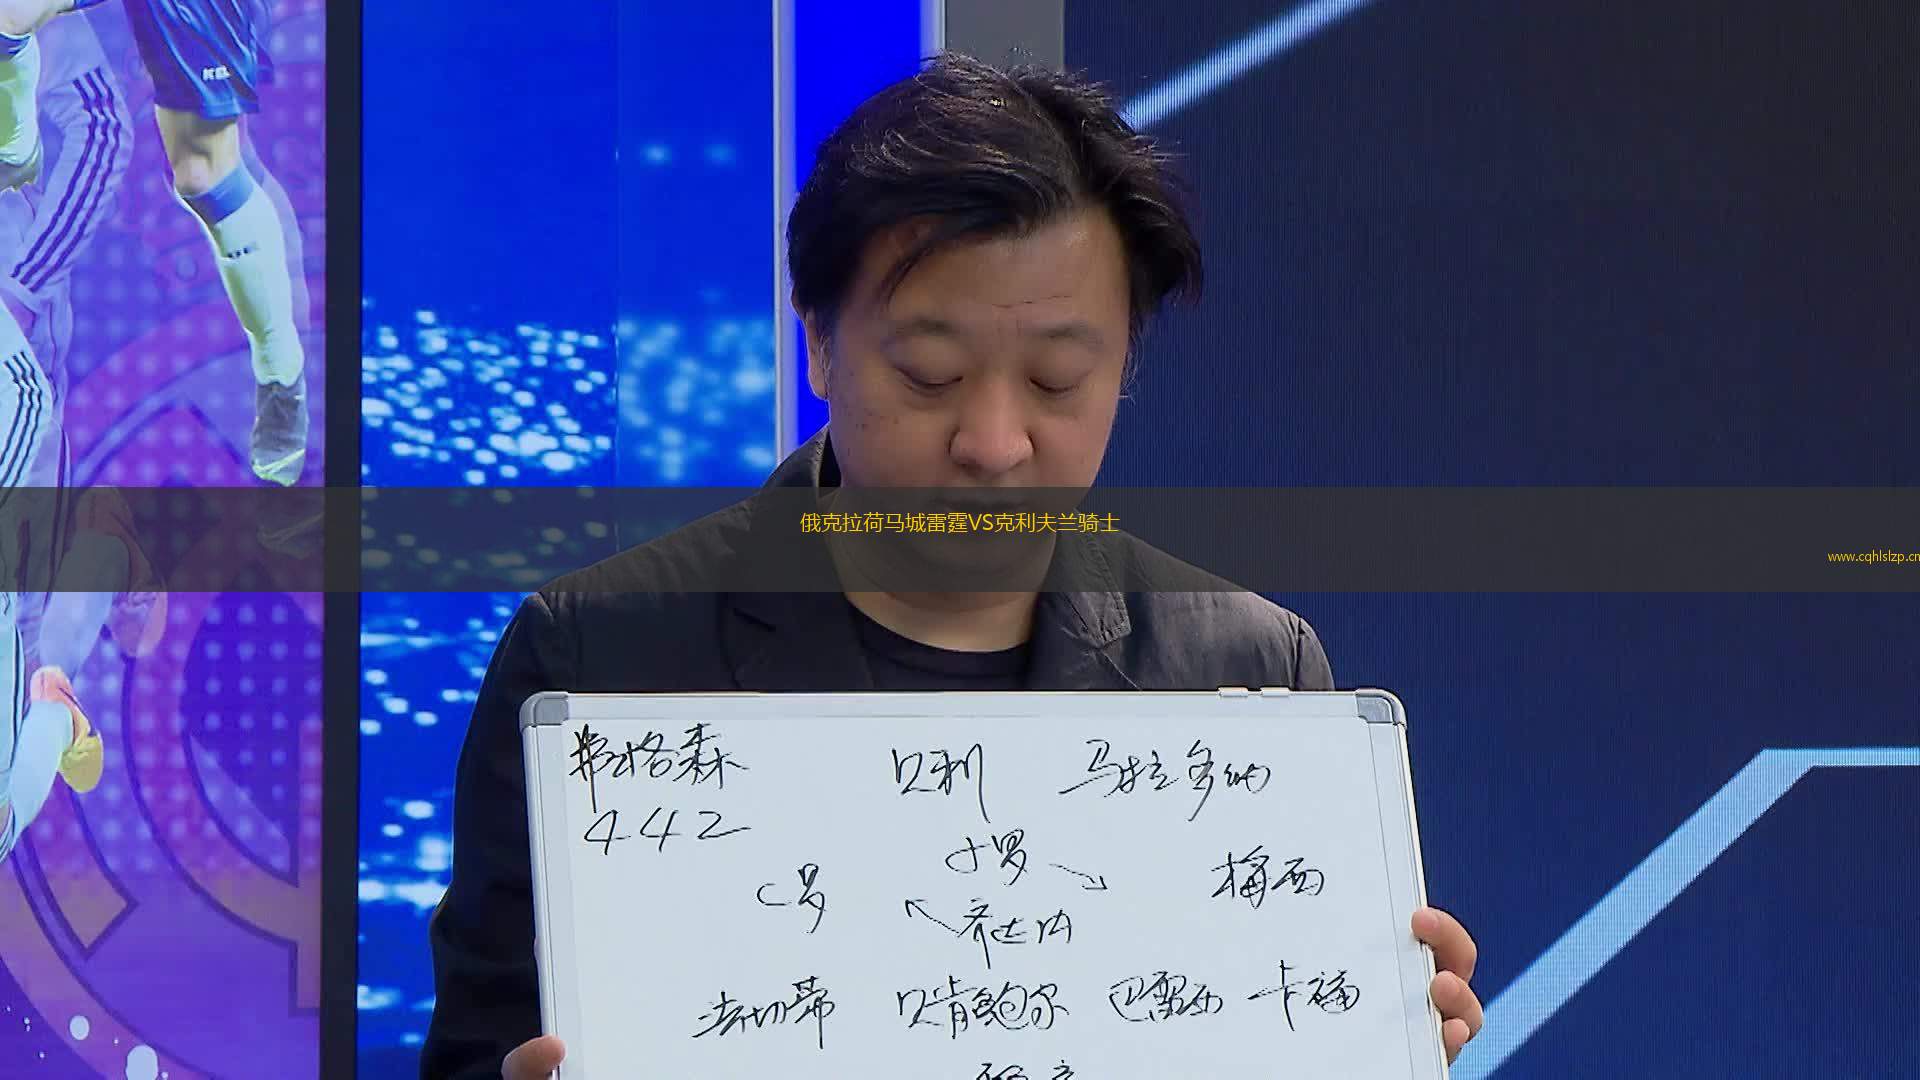 俄克拉荷马城雷霆VS克利夫兰骑士
www.cqhlslzp.cn
弗格森 贝利 马拉多纳
442
小罗
C罗 梅西
齐达内
法切蒂 贝肯鲍尔 巴雷西 卡福